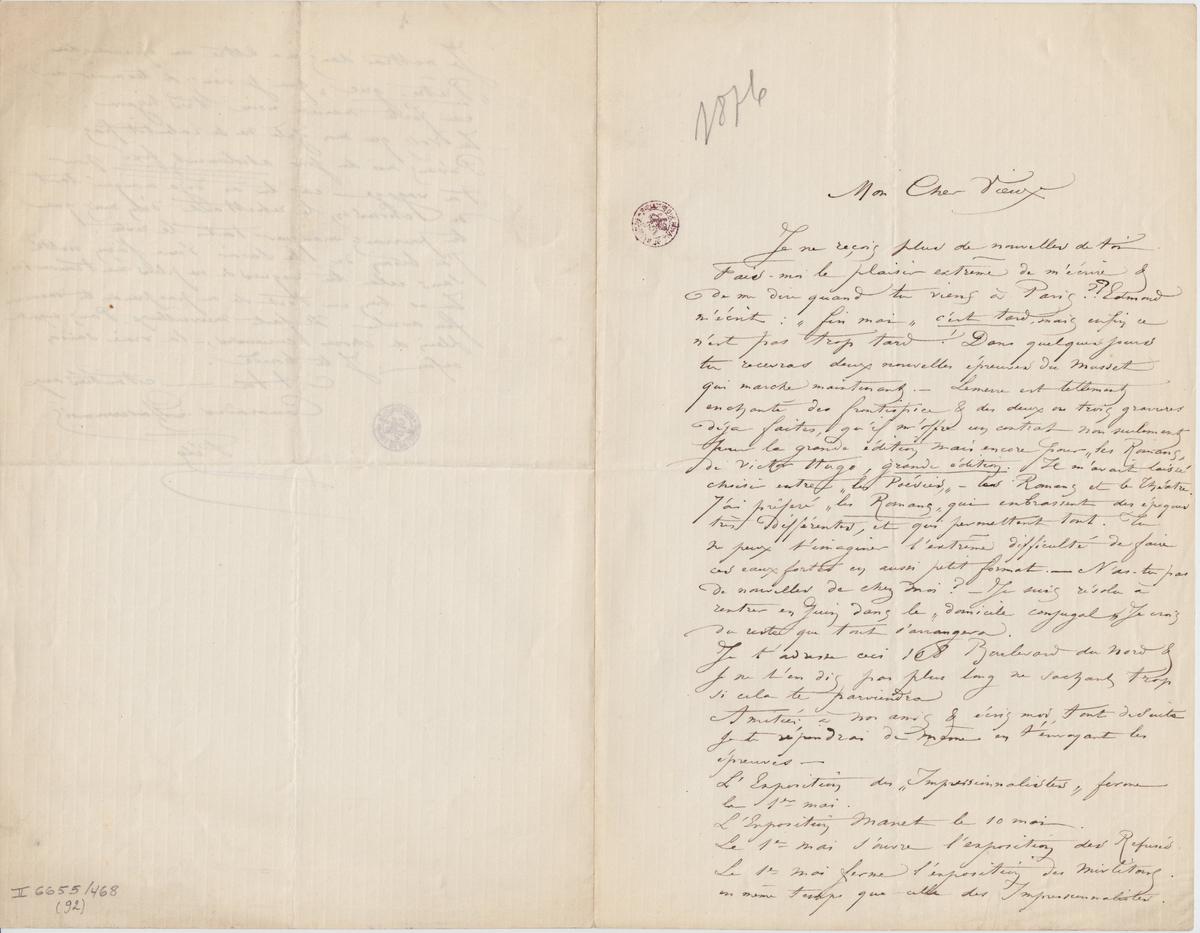 1876
Mon Cher Vieux
Je ne reçois plus de nouvelles de toi
Fais-moi le plaisir extrême de m'écrire &
de me dire quand tu viens à Paris ?? Edmond
m'écrit : „ fin mai „ c'est tard, mais enfin ce
n'est pas trop tard ! Dans quelques jours
tu recevras deux nouvelles épreuves du Musset
qui marche maintenant. — Lemerre est tellement
enchanté du frontispice & des deux ou trois gravures
déja faites, qu'il m'offre un contrat non seulement
pour la grande édition mais encore pour „les Romans„
de Victor Hugo, grande édition. Il m'avait laissé
choisir entre „les Poésies„ – les Romans et le Théâtre.
J'ai préféré „les Romans„ qui embrassent des époques
très différentes, et qui permettent tout. Tu
ne peux t'imaginer l'extrême difficulté de faire
ces eaux fortes en aussi petit format. — N'as-tu pas
de nouvelles de chez moi ? – Je suis résolu à
rentrer en Juin dans le „domicile conjugal„ Je crois
du reste que tout s'arrangera.
Je t'adresse ceci 168 Boulevard du Nord &
je ne t'en dis pas plus long ne sachant trop
si cela te parviendra
Amitiés à nos amis & écris moi, tout de suite
je te répondrai de même en t'envoyant les
épreuves —
L'Exposition des „Impressionnalistes„ ferme
le 1er mai.
L'Exposition Manet le 10 mai.
Le 1er mai s'ouvre l'exposition des Refusés
Le 1er mai ferme l'exposition des Mirlitons
en même temps que celle des Impressionnalistes.
II 6655/468
(92)